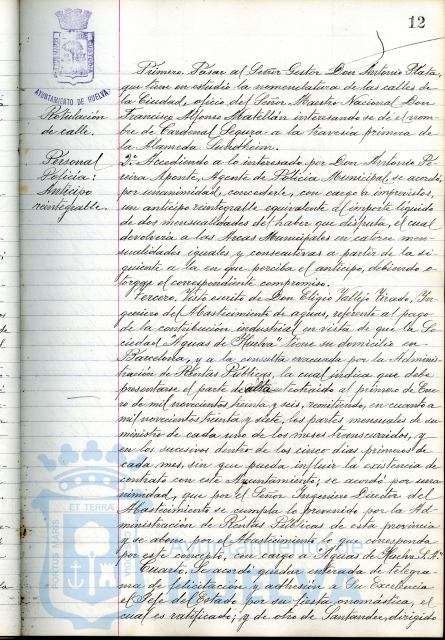 12
AYUNTAMIENTO DE HUELVA
Rotulación
de calle.
Personal
Policía:
Anticipo
reintegrable.
Primero. Pasar al Señor Gestor Don Antonio Plata,
que tiene en estudio la nomenclatura de las calles de
la Ciudad, oficio del Señor Maestro Nacional Don
Francisco Alfonso Matellán interesando se dé el nom-
bre de Cardenal Segura a la travesía primera de
la Alameda Sundheim.
2º. Accediendo a lo interesado por Don Antonio Pé-
reira Aponte, Agente de Policía Municipal, se acordó,
por unanimidad, concederle, con cargo a imprevistos,
un anticipo reintegrable equivalente al importe líquido
de dos mensualidades del haber que disfruta, el cual
devolvería a las Arcas Municipales en catorce men-
sualidades iguales y consecutivas a partir de la si-
guiente a la en que perciba el anticipo, debiendo o-
torgar el correspondiente compromiso.
Tercero. Visto escrito de Don Eligio Vallejo Tirado, In-
geniero del Abastecimiento de aguas, referente al pago
de la contribución industrial en vista de que la So-
ciedad "Aguas de Huelva" tiene su domicilio en
Barcelona, y a la consulta evacuada por la Adminis-
tración de Rentas Públicas, la cual indica que debe
presentarse el parte de alta retrotraido al primero de Ene-
ro de mil novecientos treinta y seis, remitiendo, en cuanto a
mil novecientos treinta y siete, los partes mensuales de su-
ministro de cada uno de los meses transcurridos, y
en los sucesivos dentro de los cinco días primeros de
cada mes, sin que pueda influir la existencia de
contrato con este Ayuntamiento; se acordó por una-
nimidad, que por el Señor Ingeniero Director del
Abastecimiento se cumpla lo prevenido por la Ad-
ministración de Rentas Públicas de esta provincia
y se abone por el Abastecimiento lo que corresponda
por este concepto, con cargo a Aguas de Huelva S.A.
Cuarto. Se acordó quedar enterada de telegra-
ma de felicitación y adhesión a Su Excelencia
el Jefe del Estado por su fiesta onomástica, el
cual es ratificado; y de otro de Santander, dirigido
PORTUS MARIS ET TERRAE